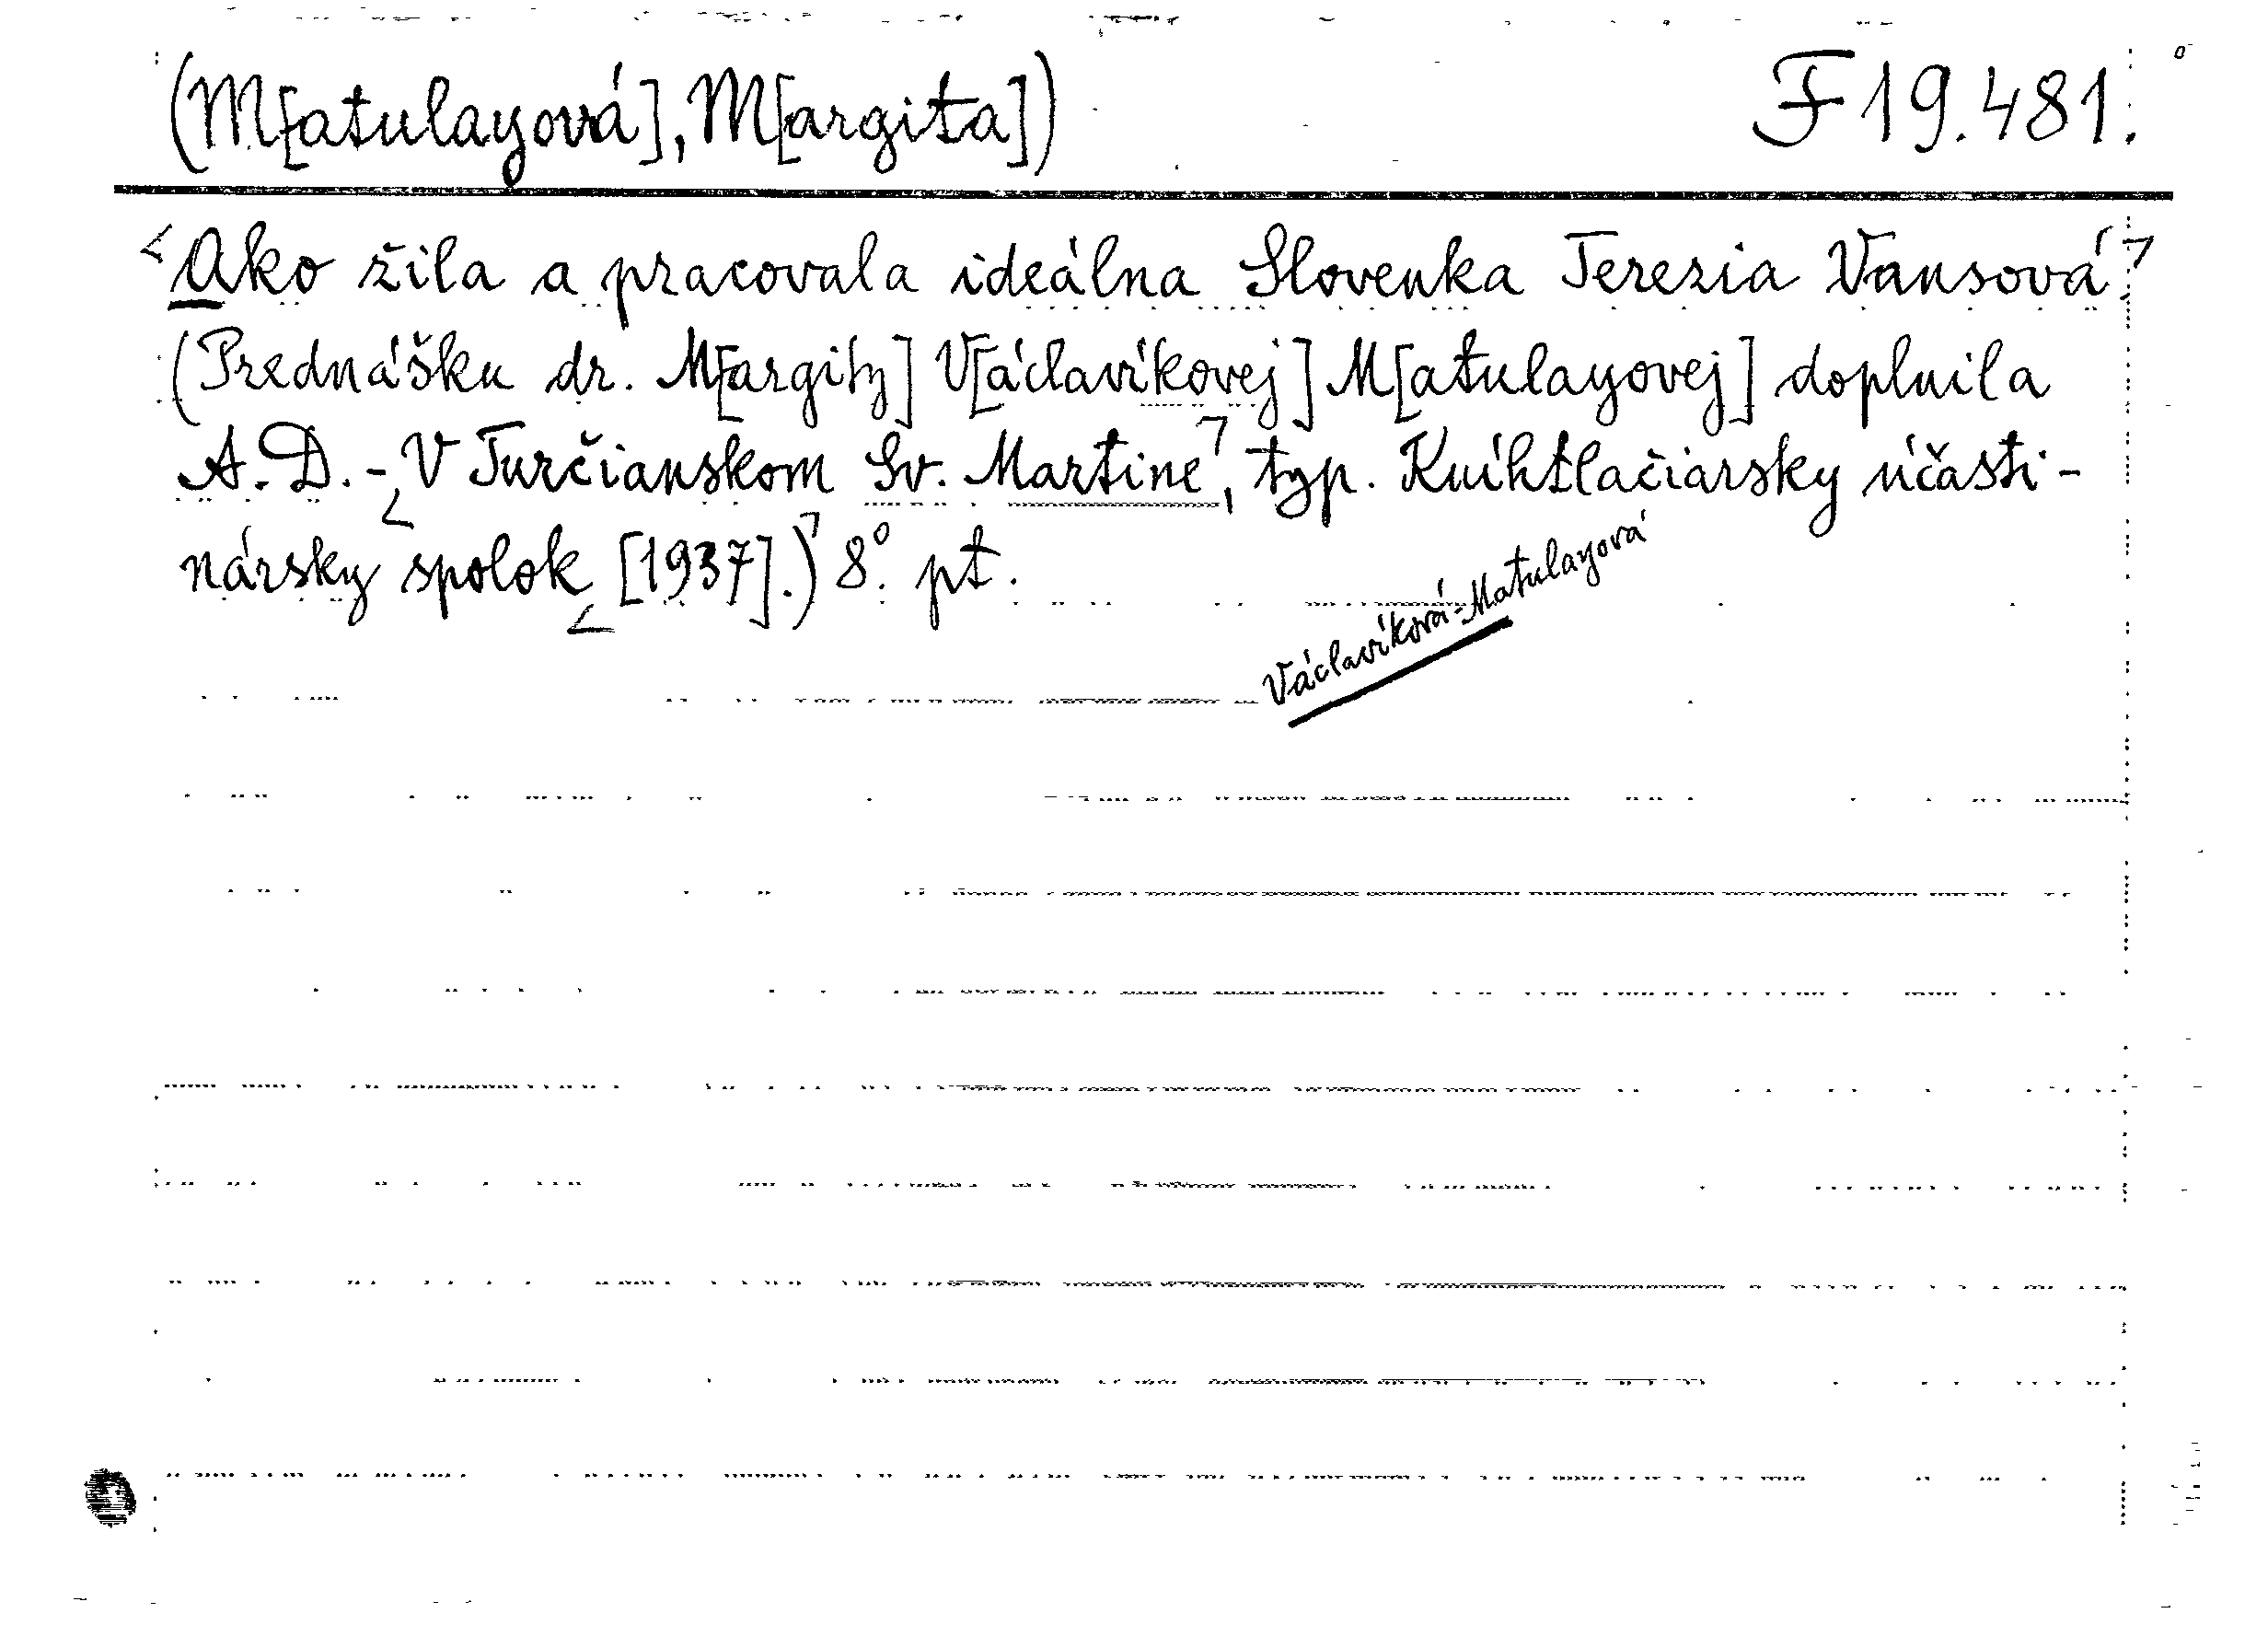 (M[atulayová], M[argita])
F 19.481.
Ako žila a pracovala ideálna Slovenka Terezia Vansová.
(Prednášku dr. M[argity] V[áclavíkovej] M[atulayovej] doplnila
A. D. - V Turčianskom Sv. Martine, typ. Kníhtlačiarsky účasti-
nársky spolok [1937].) 8° pt.
Václavíková-Matulayová